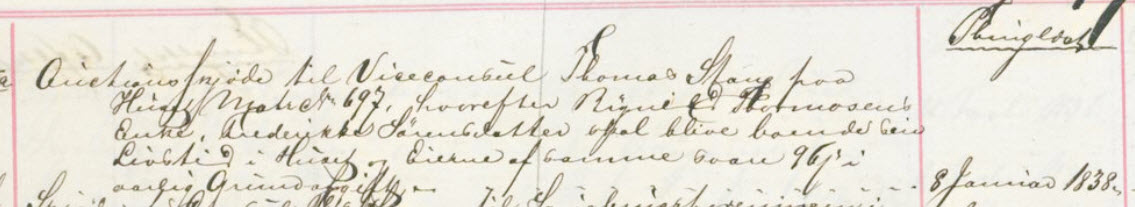 Thinglæst
Auctionsskjøde til Viceconsul Thomas Stang paa
Huset Matr No 697, hvorefter
Enke, Frederikke Sörensdatter skal blive boende sin
Livstid i Huset og Eierne af samme svare 96 i
aarlig Grundafgift.
8 Januar 1838.
til